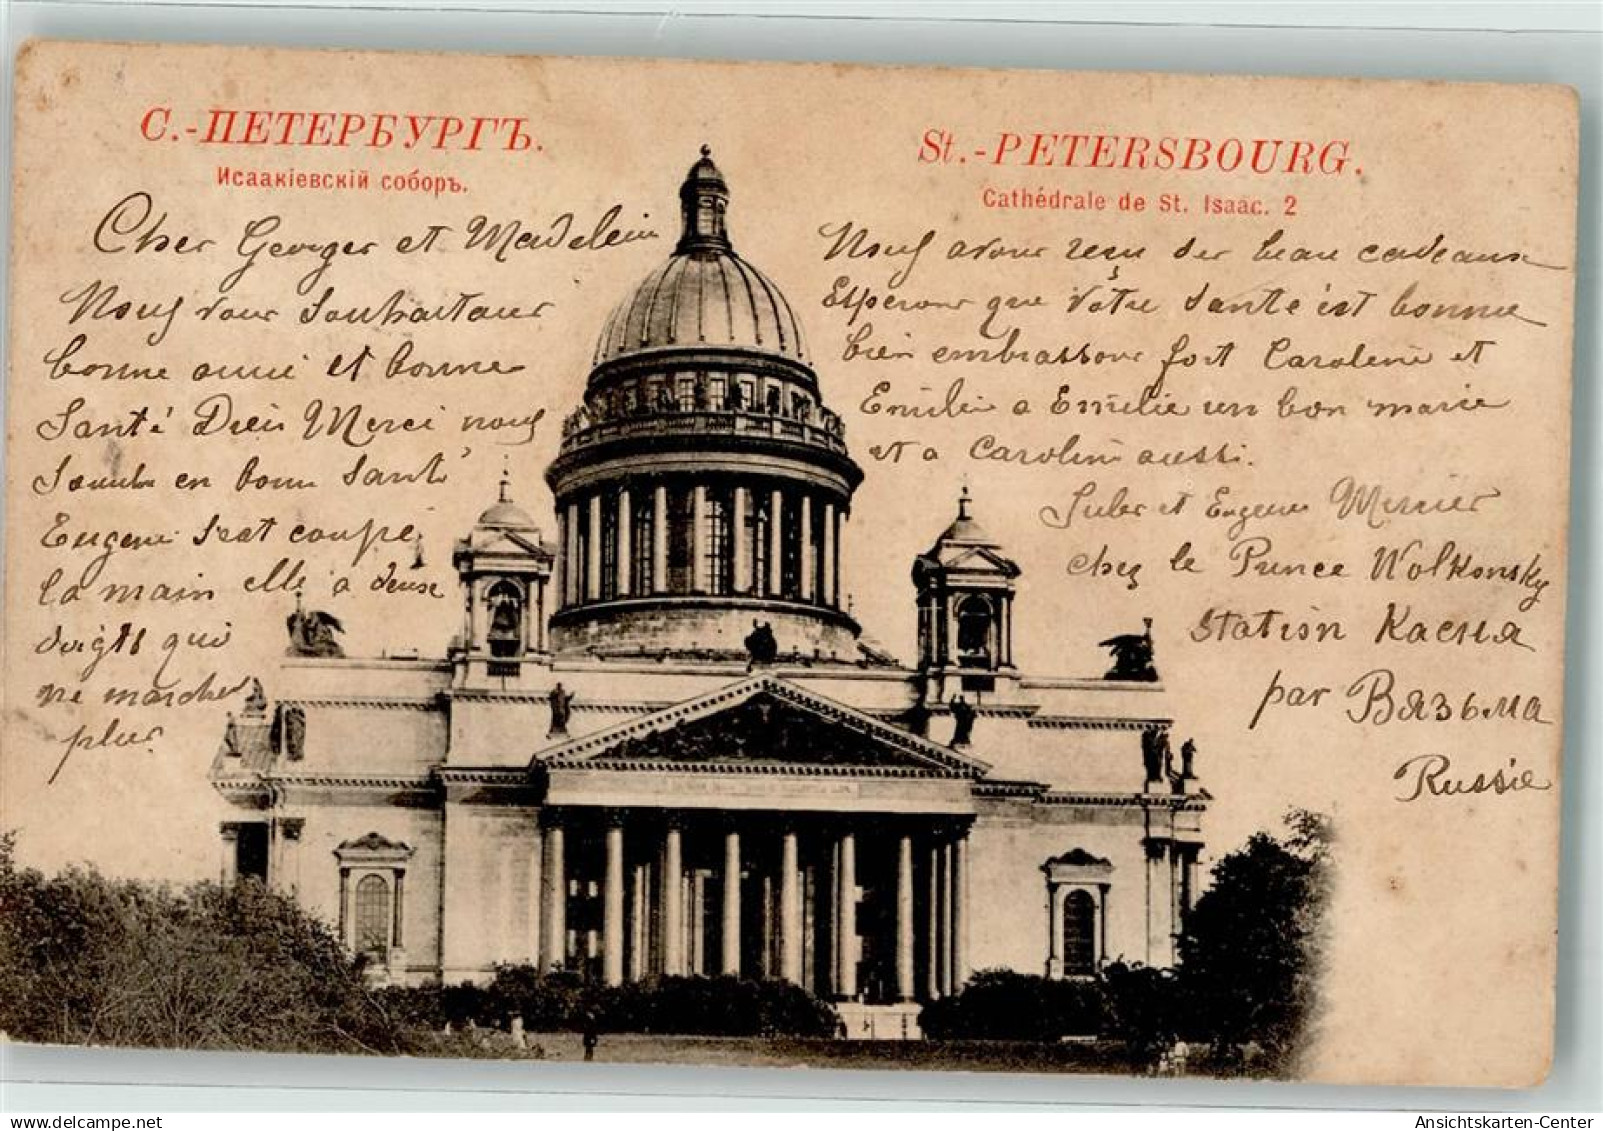 С.-ПЕТЕРБУРГЪ.
Исаакіевскій соборъ.
St.-PETERSBOURG.
Cathédrale de St. Isaac. 2
Cher Georger et Madelein
Nouf vour Souhaitour
bonne anni et bonne
Santé Dieu Merci nouf
en bonn Santé
Eugene Seat coupé
la main elle a deux
doigts qui
ne marche
plus
Nouf avour reçu der beau cadeaux
Esperour que vôtre Santé ést bonne
bien embrassour fort Caroline et
Emilie a Emilie un bon marie
et a Carolin aussi.
Juler et Eugene Mercier
chez le Prince Wolkonsky
Station Касня
par Вязьма
Russie
www.delcampe.net
Ansichtskarten-Center